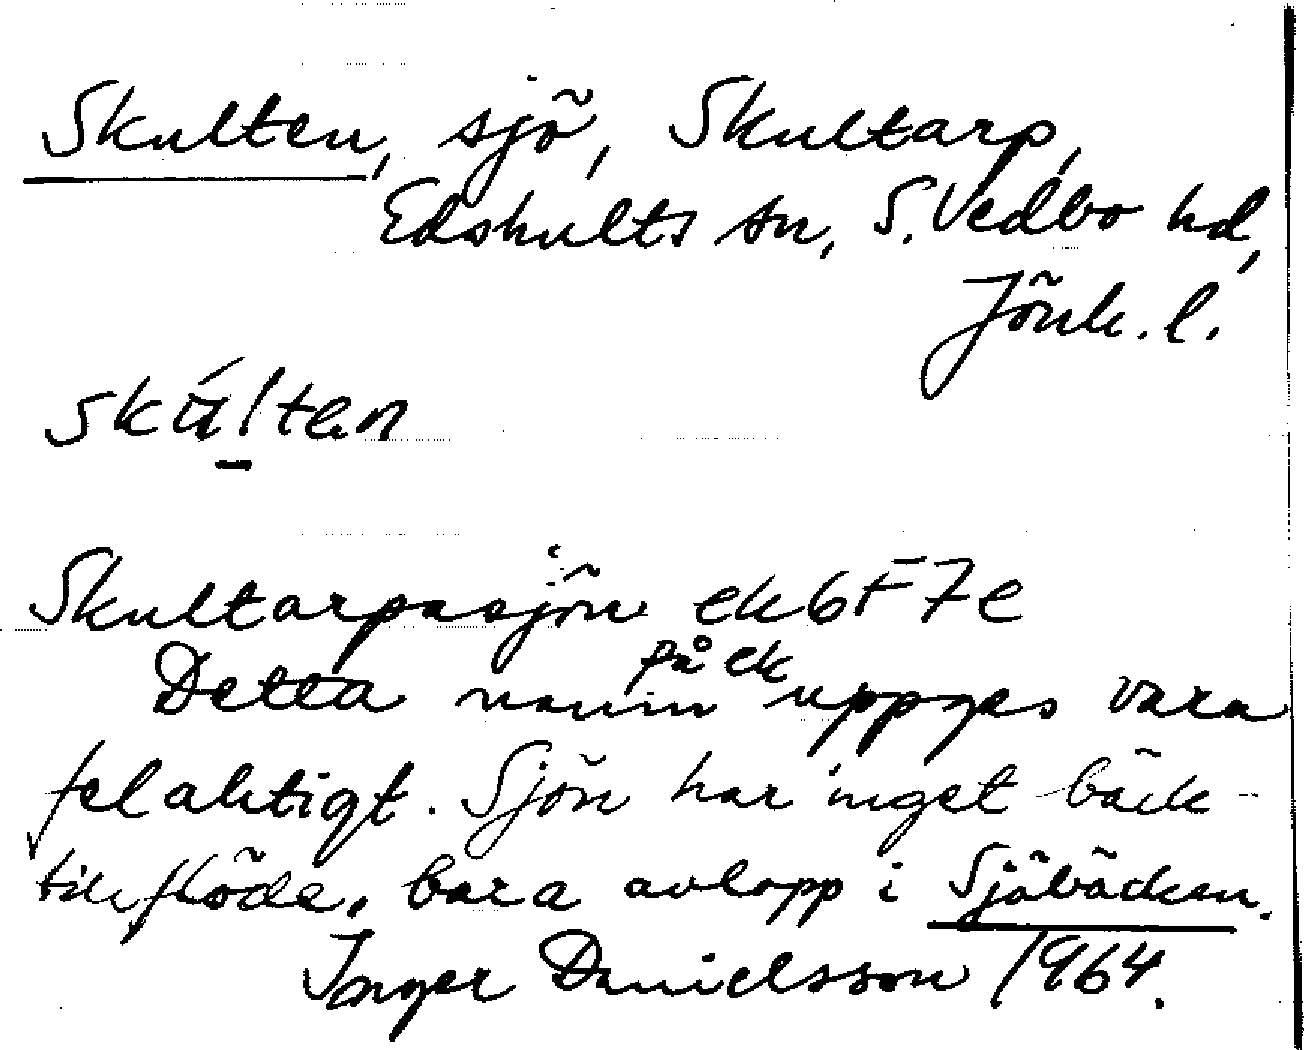 Skulten, sjö, Skultarp,
Edshults sn, S. Vedbo hd,
Jönk. l.
skúlten
Skultarpasjön ek 6F 7e
Detta namn på ek uppges vara
felaktigt. Sjön har inget bäck-
tillflöde, bara avlopp i Sjöbäcken.
Inger Danielsson 1964.